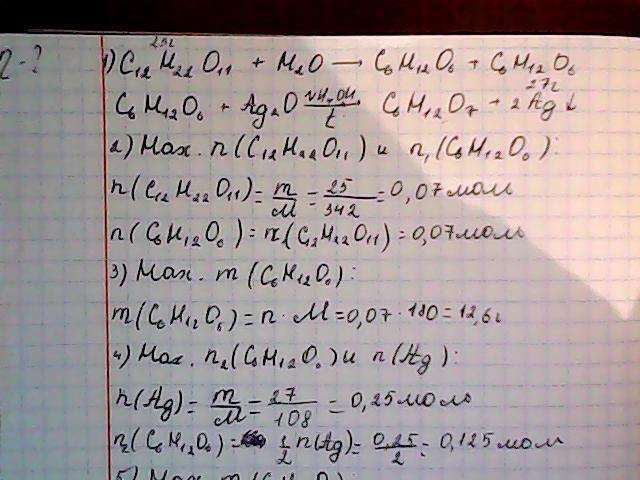 η-?
25г
1) C₁₂H₂₂O₁₁ + H₂O → C₆H₁₂O₆ + C₆H₁₂O₆
27г
C₆H₁₂O₆ + Ag₂O NH₄OH/t C₆H₁₂O₇ + 2Ag↓
2) Нах. n(C₁₂H₂₂O₁₁) и n₁(C₆H₁₂O₆):
n(C₁₂H₂₂O₁₁) = m/M = 25/342 = 0,07моль
n(C₆H₁₂O₆) = n(C₁₂H₂₂O₁₁) = 0,07моль
3) Нах. m(C₆H₁₂O₆):
m(C₆H₁₂O₆) = n · M = 0,07 · 180 = 12,6г
4) Нах. n₂(C₆H₁₂O₆) и n(Ag):
n(Ag) = m/M = 27/108 = 0,25моль
n₂(C₆H₁₂O₆) = 1/2 n(Ag) = 0,25/2 = 0,125моль
5) Нах. m(C₆H